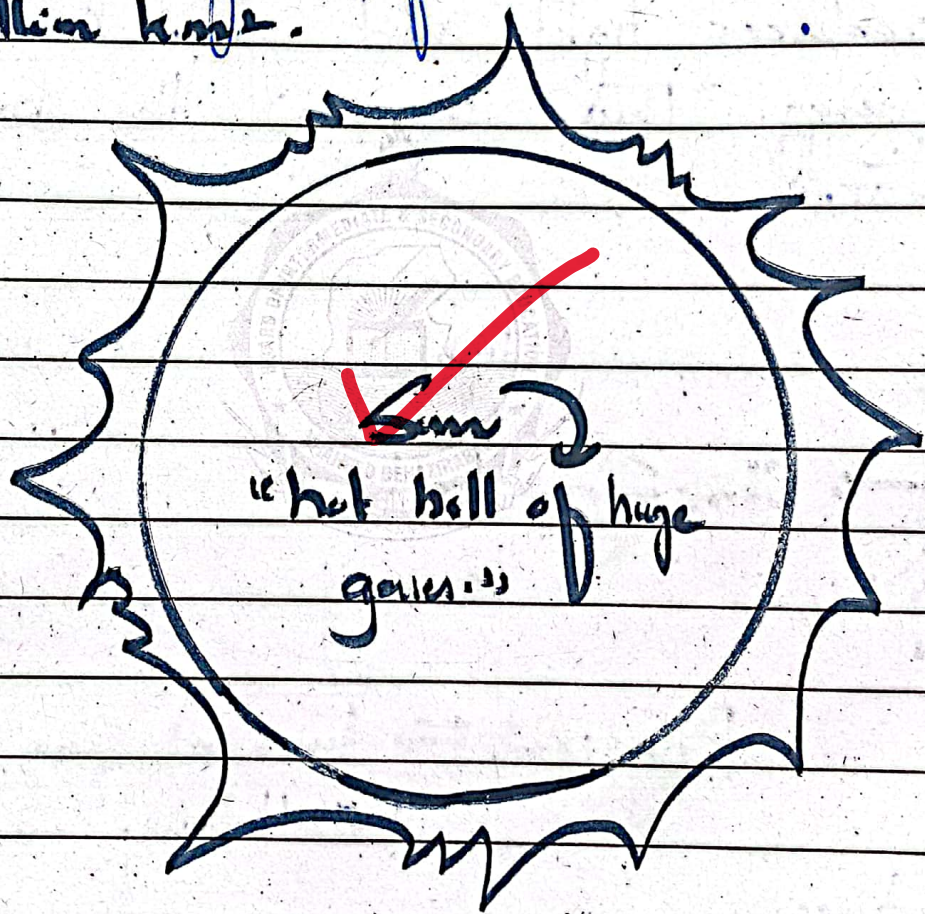 kms.
Sun
"hot ball of huge
gases."